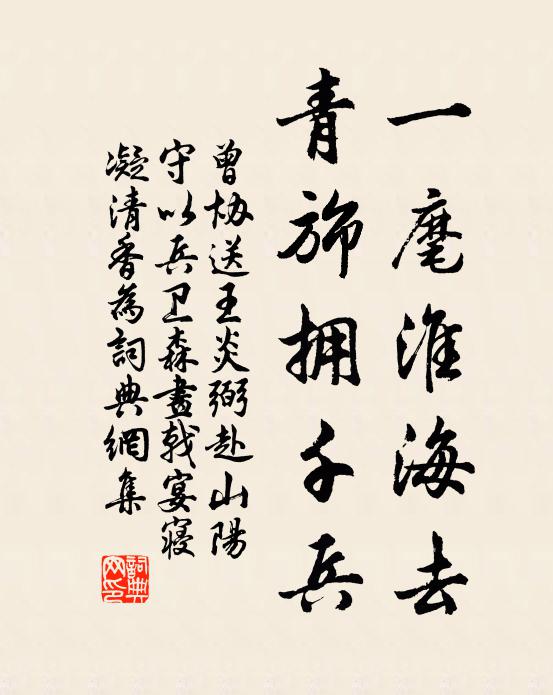 一麾淮海去
青旆拥千兵
曾协送王炎弼赴山陽
守以兵卫森畫戟宴寝
凝清香為詞典網集
詞典网印